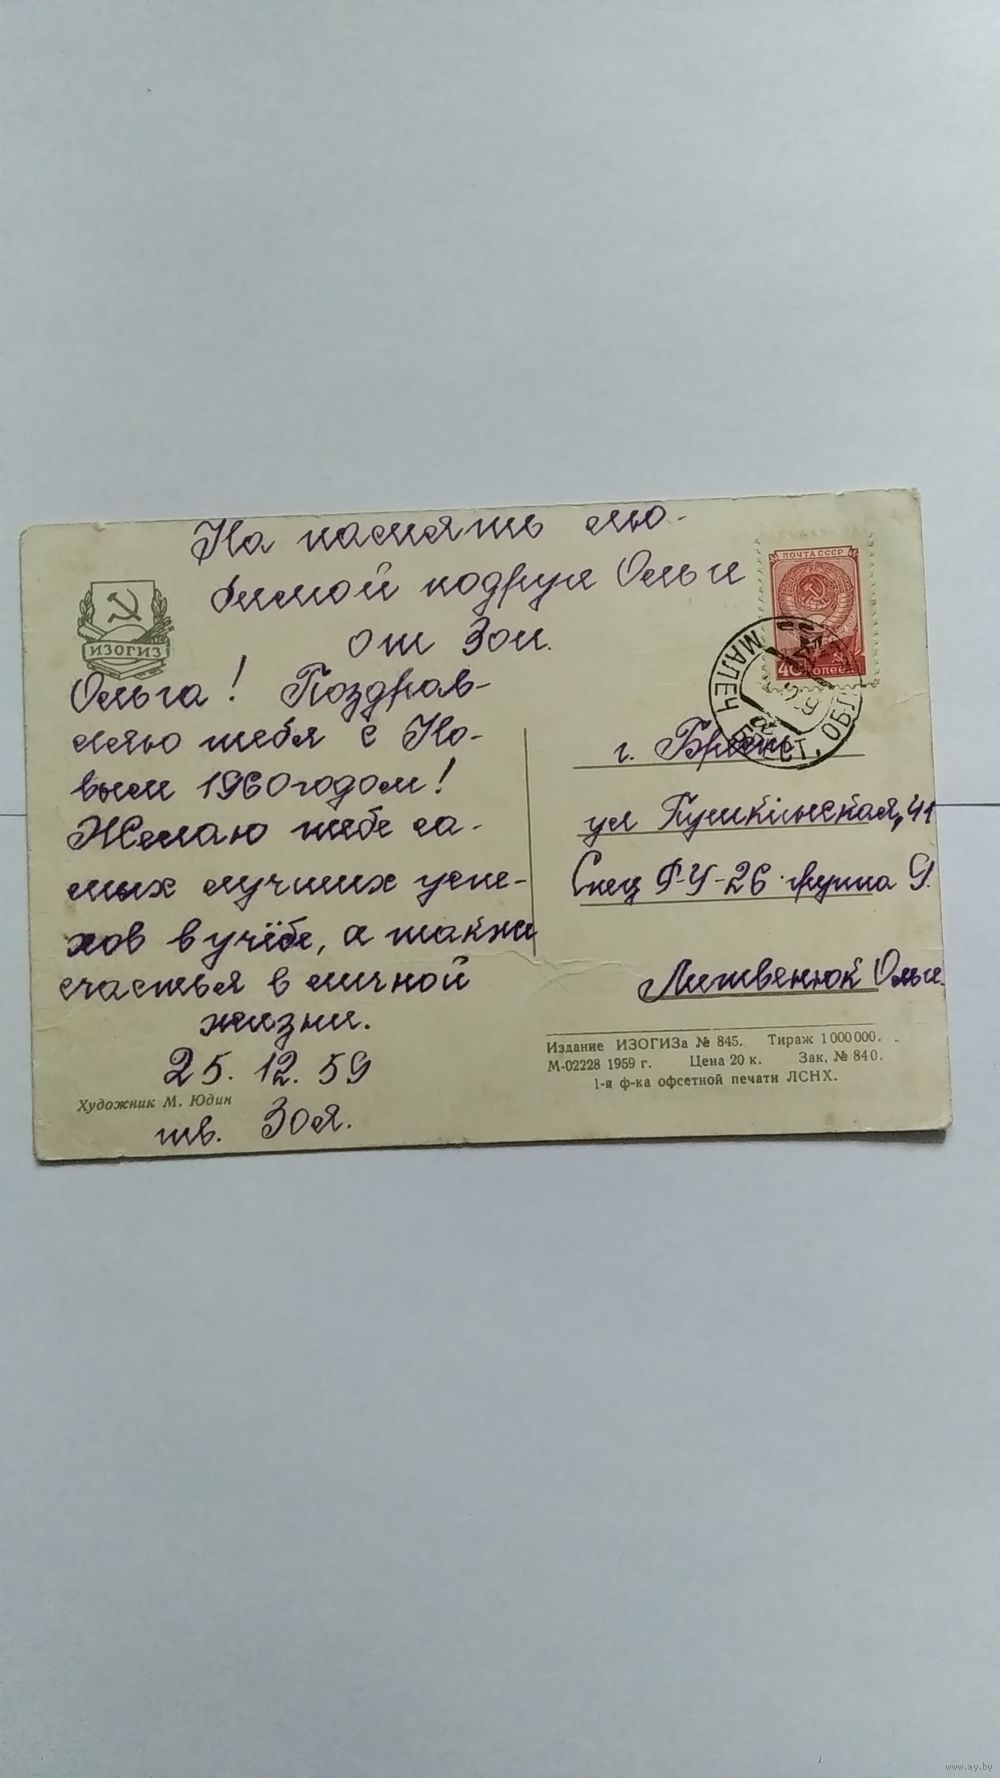 На память лю-
бимой подруги Ольги
от Зои.
ИЗОГИЗ
Ольга! Поздрав-
ляю тебя с Но-
вым 1960 годом!
Желаю тебе са-
мых лучших успе-
хов в учёбе, а также
счастья в личной
жизни.
25. 12. 59
Художник М. Юдин
тв. Зоя.
ПОЧТА СССР
40 КОПЕЕК
МАЛЕЧ БРЕСТ. ОБЛ
г. Брест
ул Пушкінская, 41
Спец Р-У-26 группа 9.
Литвенюк Ольге.
Издание ИЗОГИЗа № 845. Тираж 1 000 000.
М-02228 1959 г. Цена 20 к. Зак. № 840.
1-я ф-ка офсетной печати ЛСНХ.
www.ay.by